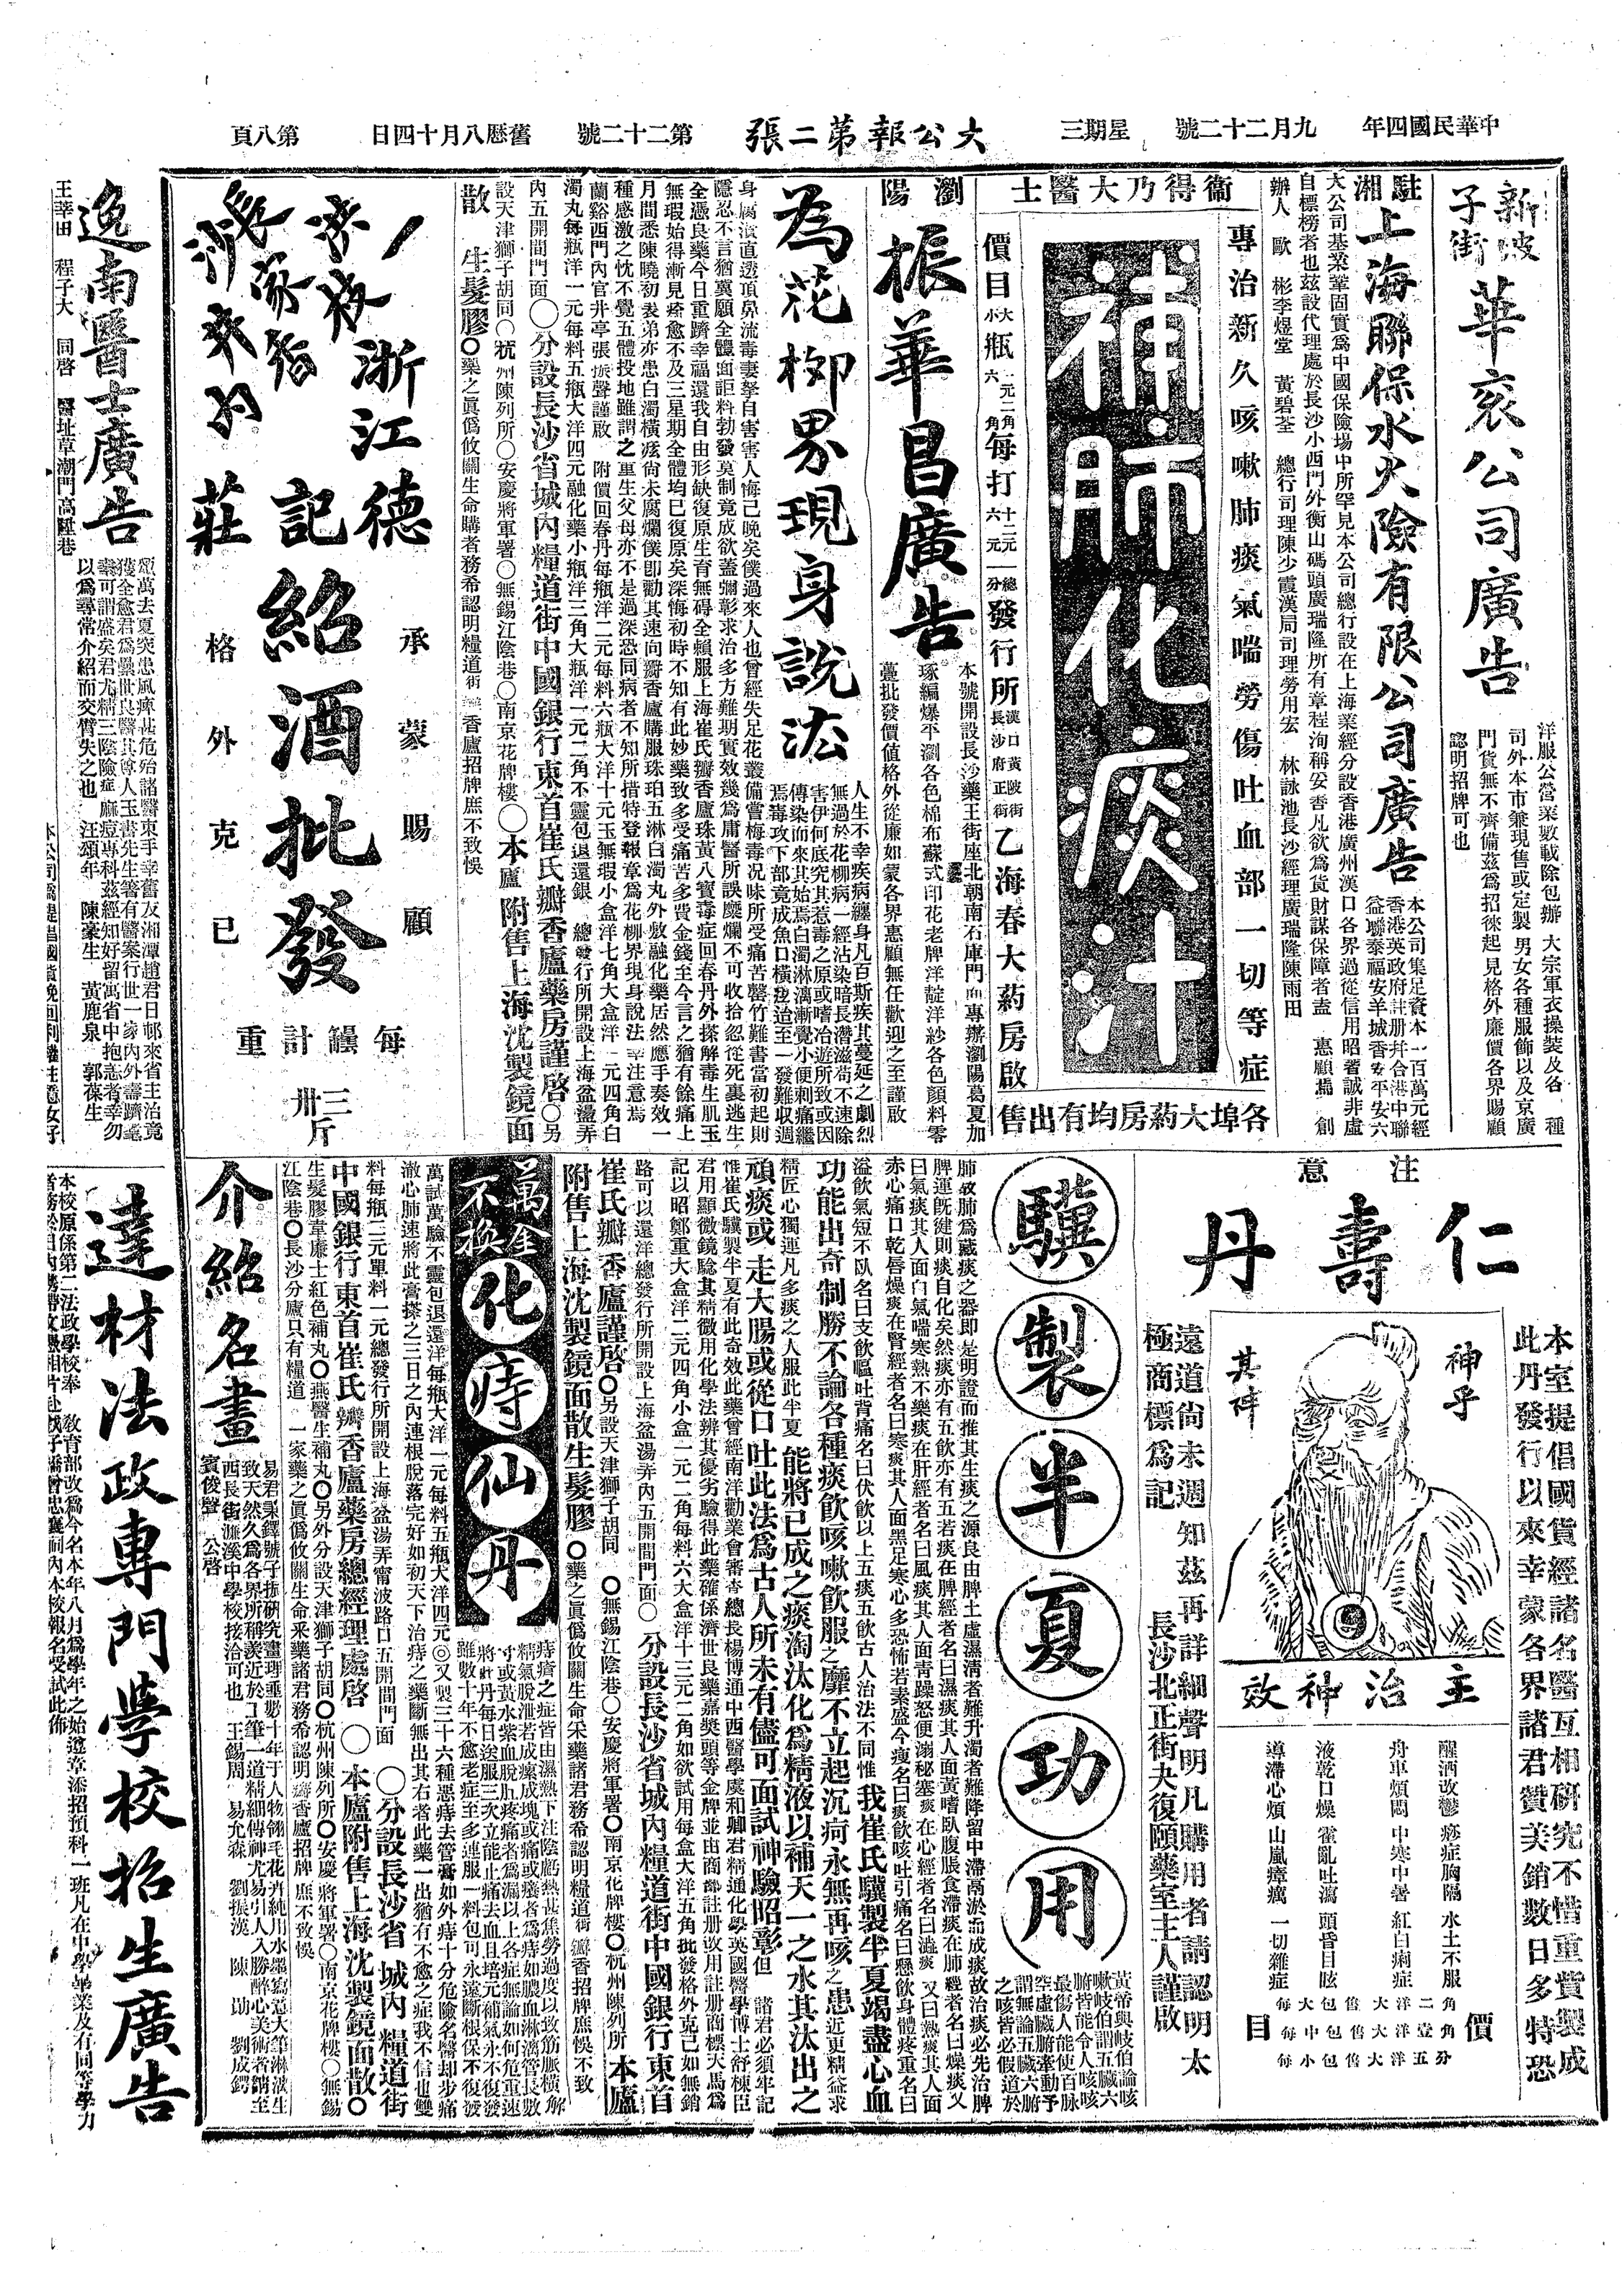 中華民國四年
九月二十二號
星期三
大公報第二張
第二十二號
舊歷八月十四日
第八頁
新坡子街
華袞公司廣告
洋服公營業數載除包辦 大宗軍衣操裝及各 種
司外本市兼現售或定製 男女各種服飾以及京廣
門貨無不齊備茲為招徠起見格外廉價各界賜顧
認明招牌可也
駐湘
上海聯保水火險有限公司廣告
本公司集足資本一百萬元經
香港英政府註册幷合港中聯
益聯泰福安羊城香安平安六
大公司基業鞏固實為中國保險場中所罕見本公司總行設在上海業經分設香港廣州漢口各界過從信用昭著誠非虛
自標榜者也茲設代理處於長沙小西門外衡山碼頭廣瑞隆所有章程洵稱妥善凡欲為貨財謀保障者盍 惠顧焉 創
辦人 歐 彬李煜堂 黃碧荃 總行司理陳少霞漢局司理勞用宏 林詠池長沙經理廣瑞隆陳雨田
衞得乃大醫士
專治新久咳嗽肺痰氣喘勞傷吐血部一切等症
補肺化痰汁
價目
大瓶一元二角
小瓶六角
每打
十二元
六元
總分發行所
漢口黃陂街
長沙府正街
乙海春大葯房啟
各埠大葯房均有出售
瀏陽
振華昌廣告
本號開設長沙藥王街座北朝南石庫門面專辦瀏陽葛夏加
琢編爆平瀏各色棉布蘇式印花老牌洋靛洋紗各色顏料零
躉批發價值格外從廉如蒙各界惠顧無任歡迎之至謹啟
為花柳界現身說法
人生不幸疾病纏身凡百斯疾其蔓延之劇烈
無過於花柳病一經沾染暗長潛滋苟不速除
害伊何底究其惹毒之原或嗜冶遊所致或因
傳染而來其始焉白濁淋漓漸覺小便刺痛繼
焉毒攻下部竟成魚口橫痃迨至一發難收週
身腐潰直透頂鼻流毒妻孥自害害人悔已晚矣僕過來人也曾經失足花叢備嘗梅毒况味所受痛苦罄竹難書當初起則
隱忍不言猶冀願全體面詎料勃發莫制竟成欲蓋彌彰求治多方難期實效幾為庸醫所誤糜爛不可收拾忽從死裏逃生
全憑良藥今日重躋幸福還我自由形缺復原生育無碍全賴服上海崔氏瓣香廬珠黃八寶毒症回春丹外搽解毒生肌玉
無瑕始得漸見痊愈不及三星期全體均已復原矣深悔初時不知有此妙藥致多受痛苦多費金錢至今言之猶有餘痛上
月間悉陳曉初表弟亦患白濁橫痃尙未腐爛僕卽勸其速向瓣香廬購服珠珀五淋白濁丸外敷融化藥居然應手奏效一
種感激之忱不覺五體投地雖謂之重生父母亦不是過深恐同病者不知所措特登報章為花柳界現身說法幸注意焉
蘭谿西門內官井亭張振聲謹啟 附價回春丹每瓶洋二元每料六瓶大洋十元玉無瑕小盒洋七角大盒洋一元四角白
濁丸每瓶洋一元每料五瓶大洋四元融化藥小瓶洋三角大瓶洋一元二角不靈包退還銀 總發行所開設上海盆湯弄
內五開間門面〇分設長沙省城內糧道街中國銀行東首崔氏瓣香廬藥房謹啓〇另
設天津獅子胡同〇杭州陳列所〇安慶將軍署〇無錫江陰巷〇南京花牌樓〇本廬附售上海沈製鏡面
散 生髮膠〇藥之眞僞攸關生命購者務希認明糧道街瓣香廬招牌庶不致悞
浙江德記莊
紹酒批發
承蒙賜顧
格外克已
每罎計重
三斤
逸南醫士廣告
獲全愈君為曩世良醫其尊人玉書先生箸有醫案行世一家內外壽躋耄
耋可謂盛矣君尤精三陰險症麻痘專科茲經知好留寓省中抱恙者幸勿
以為尋常介紹而交臂失之也 汪頌年 陳蒙生 黃鹿泉 郭葆生
王莘田 程子大 同啓 醫址草潮門高陞巷
注意
仁壽丹
神乎其神
主治神效
本室提倡國貨經諸名醫互相研究不惜重貲製成
此丹發行以來幸蒙各界諸君贊美銷數日多特恐
遠道尙未週知茲再詳細聲明凡購用者請認明太
極商標為記 長沙北正街大復頤藥室主人謹啟
醒酒改鬱 痧症胸隔 水土不服
舟車煩悶 中寒中暑 紅白痢症
液乾口燥 霍亂吐瀉 頭昏目眩
導滯心煩 山嵐瘴癘 一切雜症
價目
每大包售大洋二角
每中包售大洋壹角
每小包售大洋五分
驥製半夏功用
黃帝與岐伯論咳
嗽岐伯謂五臟六
腑皆能令人咳咳
最傷人能使百脉
空虛臟腑牽動予
謂無論五臟六腑
之咳皆必假道於
肺故肺為藏痰之器即是明證而推其生痰之源良由脾土虛濕淸者難升濁者難降留中滯鬲於焉成痰故治痰必先治脾
脾運旣健則痰自化矣然痰亦有五飲亦有五若痰在脾經者名曰濕痰其人面黃嗜臥腹脹食滯痰在肺經者名曰燥痰又
曰氣痰其人面白氣喘寒熱不樂痰在肝經者名曰風痰其人面靑躁怒便溺秘塞痰在心經者名曰溫痰 又曰熱痰其人面
赤心痛口乾唇燥痰在腎經者名曰寒痰其人面黑足寒心多恐怖若素盛今瘦名曰痰飲咳吐引痛名曰懸飲身體疼重名曰
溢飲氣短不臥名曰支飲嘔吐背痛名曰伏飲以上五痰五飲古人治法不同惟我崔氏驥製半夏竭盡心血
功能出奇制勝不論各種痰飲咳嗽飲服之靡不立起沉疴永無再咳之患近更精益求
精匠心獨運凡多痰之人服此半夏 能將已成之痰淘汰化為精液以補天一之水其汰出之
頑痰或走大腸或從口吐此法為古人所未有儘可面試神驗昭彰但 諸君必須牢記
惟崔氏驥製半夏有此奇效此藥曾經南洋勸業會審査總長楊博通中西醫學虞和卿君精通化學英國醫學博士舒棟臣
君用顯微鏡驗其精微用化學法辨其優劣驗得此藥確係濟世良藥嘉獎頭等金牌並由商部註册改用註册商標天馬為
記以昭鄭重大盒洋二元四角小盒一元二角每料六大盒洋十三元二角如欲試用每盒大洋五角批發格外克已如無銷
路可以還洋總發行所開設上海盆湯弄內五開間門面〇分設長沙省城內糧道街中國銀行東首
崔氏瓣香廬謹啓〇另設天津獅子胡同 〇無錫江陰巷〇安慶將軍署〇南京花牌樓〇杭州陳列所 本廬
附售上海沈製鏡面散生髮膠 〇藥之眞僞攸關生命釆藥諸君務希認明糧道街 瓣香招牌庶悞不致
萬金不換
化痔仙丹
痔瘡之症皆由濕熱下注陰虧熱甚焦勞過度以致筋脈橫解
精氣脫泄若成瘰成塊或痛或癢者為痔如膿血淋漓管長數
寸或黃水紫血脫肛疼痛者為漏以上各症無論如何危重速
將此丹每日送服三次立能止痛去血且培元補氣永不復發
雖數十年不愈老症至多連服一料包可永遠斷根保不復發
萬試萬驗不靈包退還洋每瓶大洋一元每料五瓶大洋四元〇又製三十六種惡痔去管膏如外痔十分危險名醫却步痛
澈心肺速將此膏搽之三日之內連根脫落完好如初天下治痔之藥斷無出其右者此藥一出猶有不愈之症我不信也雙
料每瓶二元單料一元總發行所開設上海盆湯弄甯波路口五開間門面 〇分設長沙省城內糧道街
中國銀行東首崔氏瓣香廬藥房總經理處啓 〇本廬附售上海沈製鏡面散〇
生髮膠韋廉士紅色補丸〇燕醫生補丸〇另外分設天津獅子胡同〇杭州陳列所〇安慶將軍署〇南京花牌樓〇無錫
江陰巷〇長沙分廬只有糧道 一家藥之眞僞攸關生命釆藥諸君務希認明瓣香廬招牌庶不致悞
介紹名畫
易君粟鐸號子振研究畫理垂數十年于人物翎毛花卉純用水墨寫意大筆淋漓波生
致天然久為各界所稱羨近於工筆一道精細傳神尤易引人入勝醉心美術者請至
西長街濂溪中學校接洽可也 王錫周 易允森 劉振漢 陳勛 劉成鍔
賓俊聲 公啓
達材法政專門學校招生廣告
本校原係第二法政學校奉 敎育部改為今名本年八月為學年之始遵章添招預科一班凡在中學畢業及有同等學力